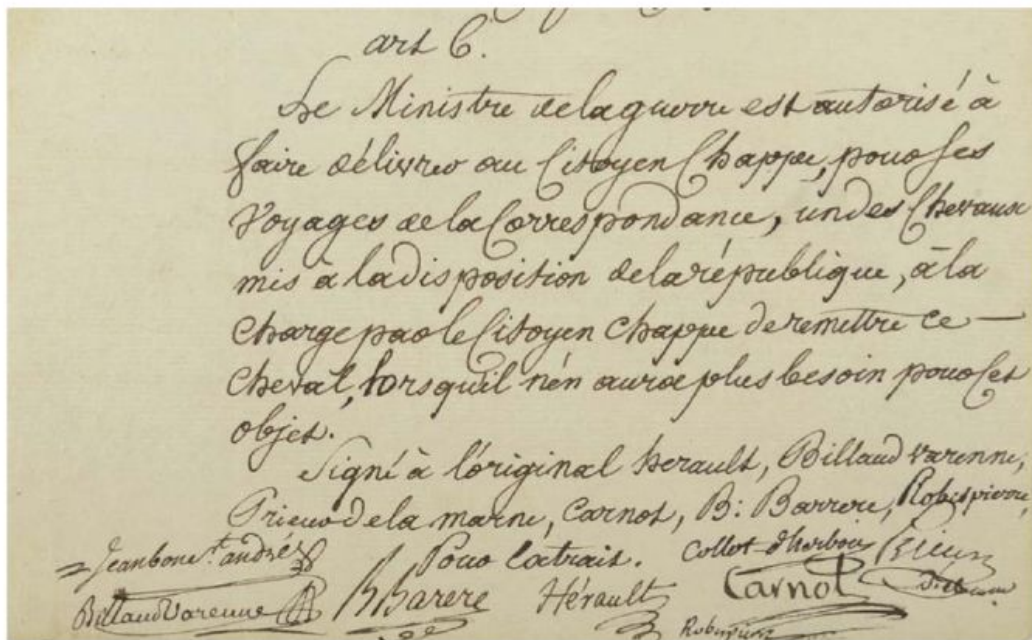 art 6.
Le Ministre de la guerre est autorisé à
faire délivrer au Citoyen Chappe, pour ses
Voyages de la Correspondance, un des Chevaux
mis à la disposition de la république, à la
charge par le Citoyen Chappe de remettre ce —
cheval, lorsqu'il n'en aura plus besoin pour cet
objet.
Signé à l'original herault, Billaud varenne,
Prieur de la marne, Carnot, B: Barrere, Robespierre,
Pour Extrait.
Jeanbon St. andré Collot d'herbois
Billaud Varenne B Barere Hérault Carnot
Robespierre